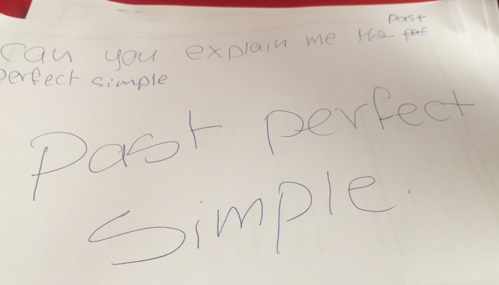 Can you explain me the past
perfect simple
Past perfect
simple.